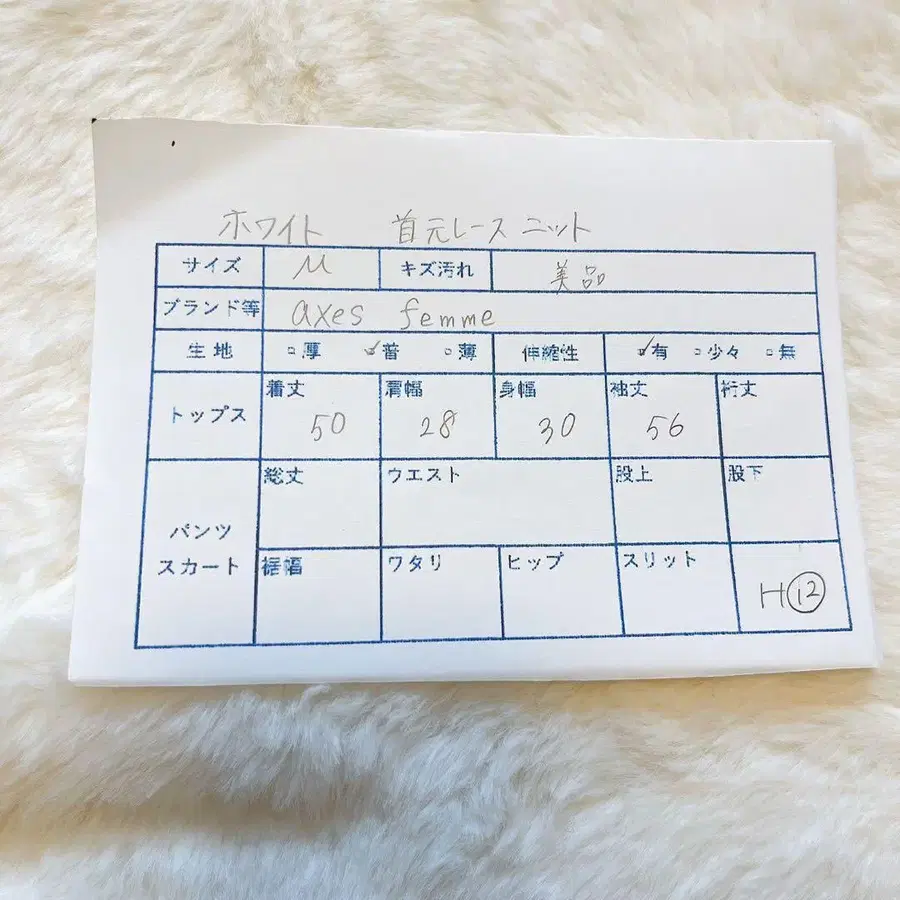 ホワイト 首元レース ニット
サイズ M キズ汚れ 美品
ブランド等 axes femme
生地 □厚 ☑普 □薄 伸縮性 ☑有 □少々 □無
トップス 着丈 50 肩幅 28 身幅 30 袖丈 56 裄丈
パンツ スカート 総丈 ウエスト 股上 股下
裾幅 ワタリ ヒップ スリット H⑫